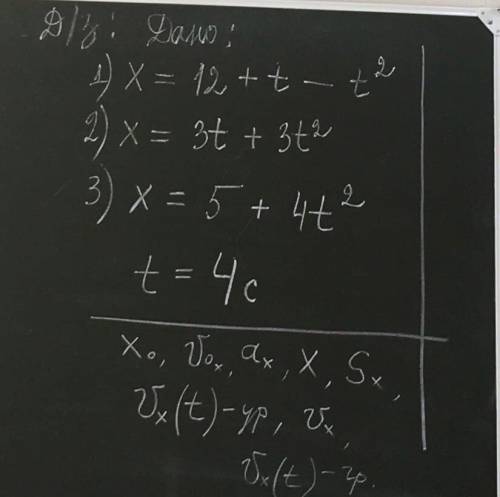 Д/з: Дано:
1) x = 12 + t - t²
2) x = 3t + 3t²
3) x = 5 + 4t²
t = 4c
x₀, v₀ₓ, aₓ, x, Sₓ,
vₓ(t)-ур, vₓ,
vₓ(t)-гр.